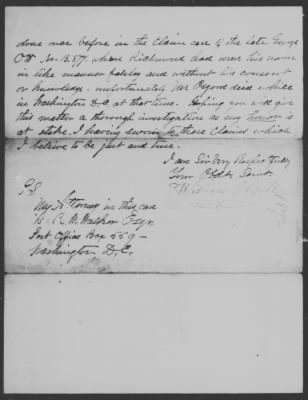 done once before in the Claim case of the late George
Ott No. 13.877. where Richmond had used his name
in like manner falsely and without his consent
or knowledge. unfortunately Mr Osgood died while
in Washington D.C. at that time. Hoping you will give
this matter a thorough investigation as my honor is
at stake. I having sworn to these Claims which
I believe to be just and true.
I am Sir Very Respectfully
Your Obdt Servt.
William
P.S.
My Attorney in this case
is R. W. Walker Esqr
Post Office Box 559 -
Washington D.C.